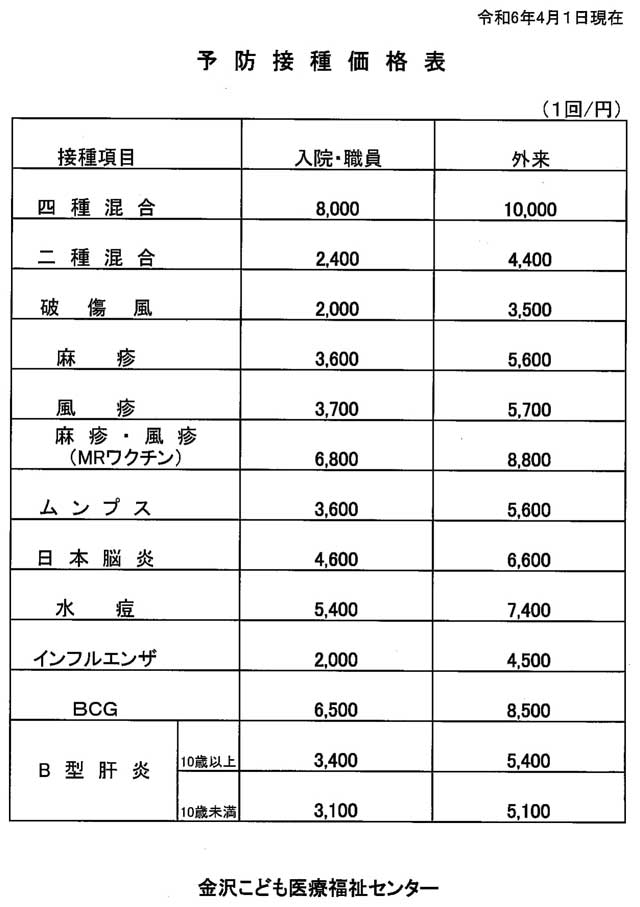 令和6年4月1日現在
予防接種価格表
(1回/円)
接種項目 入院・職員 外来
四種混合 8,000 10,000
二種混合 2,400 4,400
破傷風 2,000 3,500
麻疹 3,600 5,600
風疹 3,700 5,700
麻疹・風疹
(MRワクチン) 6,800 8,800
ムンプス 3,600 5,600
日本脳炎 4,600 6,600
水痘 5,400 7,400
インフルエンザ 2,000 4,500
BCG 6,500 8,500
B型肝炎 10歳以上 3,400 5,400
10歳未満 3,100 5,100
金沢こども医療福祉センター